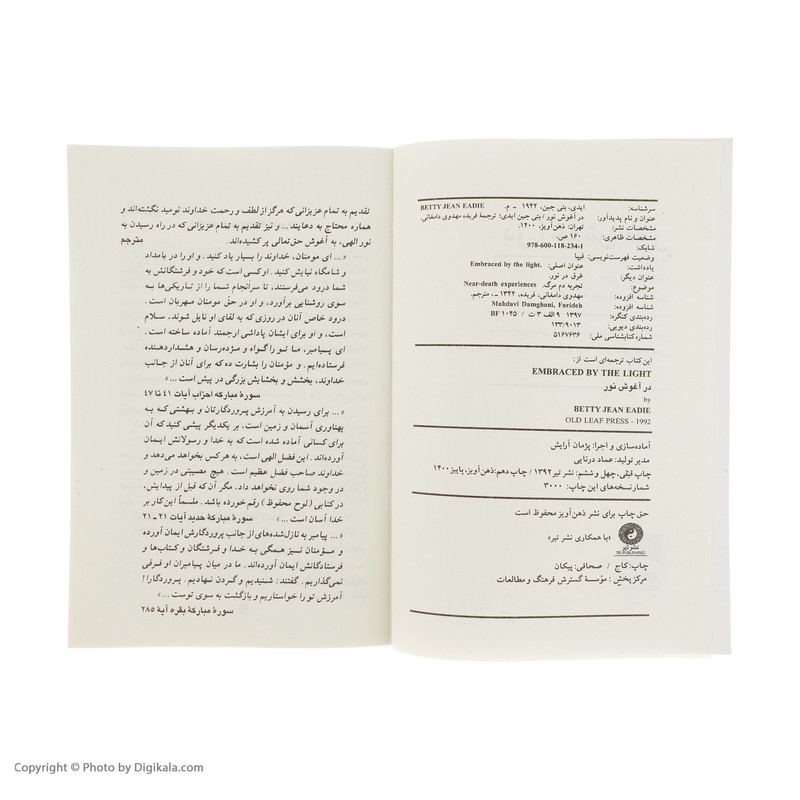 سرشناسه: ایدی، بتی جین، ۱۹۴۲ ـ م. BETTY JEAN EADIE
عنوان و نام پدیدآور: در آغوش نور / بتی جین ایدی؛ ترجمهٔ فریده مهدوی دامغانی.
مشخصات نشر: تهران: ذهن‌آویز، ۱۴۰۰.
مشخصات ظاهری: ۱۶۰ ص.
شابک: 978-600-118-234-1
وضعیت فهرست‌نویسی: فیپا
یادداشت: عنوان اصلی: Embraced by the light.
عنوان دیگر: غرق در نور.
موضوع: تجربه دم مرگ. Near-death experiences
شناسه افزوده: مهدوی دامغانی، فریده، ۱۳۴۲ ـ ، مترجم.
شناسه افزوده: Mahdavi Damghani, Farideh
رده‌بندی کنگره: ۱۳۹۷ ۹ الف ۳ ت / BF ۱۰۴۵
رده‌بندی دیویی: ۱۳۳/۹۰۱۳
شماره کتابشناسی ملی: ۵۱۶۷۶۳۶
این کتاب ترجمه‌ای است از:
EMBRACED BY THE LIGHT
در آغوش نور
by
BETTY JEAN EADIE
OLD LEAF PRESS - 1992
آماده‌سازی و اجرا: پژمان آرایش
مدیر تولید: عماد درنایی
چاپ قبلی، چهل و ششم: نشر تیر ۱۳۹۲ / چاپ دهم: ذهن‌آویز، پاییز ۱۴۰۰
شمار نسخه‌های این چاپ: ۳۰۰۰
حق چاپ برای نشر ذهن‌آویز محفوظ است
«با همکاری نشر تیر»
نشر تیر
TIR PUBLISHING
چاپ: کاج / صحافی: پیکان
مرکز پخش: مؤسسهٔ گسترش فرهنگ و مطالعات
تقدیم به تمام عزیزانی که هرگز از لطف و رحمت خداوند نومید نگشته‌اند و
هماره محتاج به دعایند ... و نیز تقدیم به تمام عزیزانی که در راه رسیدن به
نور الهی، به آغوش حق‌تعالی پر کشیده‌اند. مترجم
«... ای مومنان، خداوند را بسیار یاد کنید. و او را در بامداد
و شامگاه نیایش کنید. او کسی است که خود و فرشتگانش به
شما درود می‌فرستند، تا سرانجام شما را از تاریکی‌ها به
سوی روشنایی برآورد، و او در حق مومنان مهربان است.
درود خاص آنان در روزی که به لقای او نایل شوند، سلام
است، و او برای ایشان پاداشی ارجمند آماده ساخته است.
ای پیامبر، ما تو را گواه و مژده‌رسان و هشداردهنده
فرستاده‌ایم. و مؤمنان را بشارت ده که برای آنان از جانب
خداوند، بخشش و بخشایش بزرگی در پیش است ...»
سورهٔ مبارکه احزاب آیات ۴۱ تا ۴۷
«... برای رسیدن به آمرزش پروردگارتان و بهشتی که به
پهناوری آسمان و زمین است، بر یکدیگر پیشی کنید که آن
برای کسانی آماده شده است که به خدا و رسولانش ایمان
آورده‌اند. این فضل الهی است، به هرکس بخواهد می‌دهد و
خداوند صاحب فضل عظیم است. هیچ مصیبتی در زمین و
در وجود شما روی نخواهد داد، مگر آن‌که قبل از پیدایش،
در کتابی (لوح محفوظ) رقم خورده باشد. ملسماً این کار بر
خدا آسان است ...» سورهٔ مبارکهٔ حدید آیات ۲۱ ـ ۲۱
«... پیامبر به نازل‌شده‌های از جانب پروردگارش ایمان آورده
و مؤمنان نیز همگی به خدا و فرشتگان و کتاب‌ها و
فرستادگانش ایمان آورده‌اند. ما در میان پیامبران او فرقی
نمی‌گذاریم. گفتند: شنیدیم و گردن نهادیم. پروردگارا!
آمرزش تو را خواستاریم و بازگشت به سوی توست ...»
سورهٔ مبارکهٔ بقره آیهٔ ۲۸۵
Copyright © Photo by Digikala.com